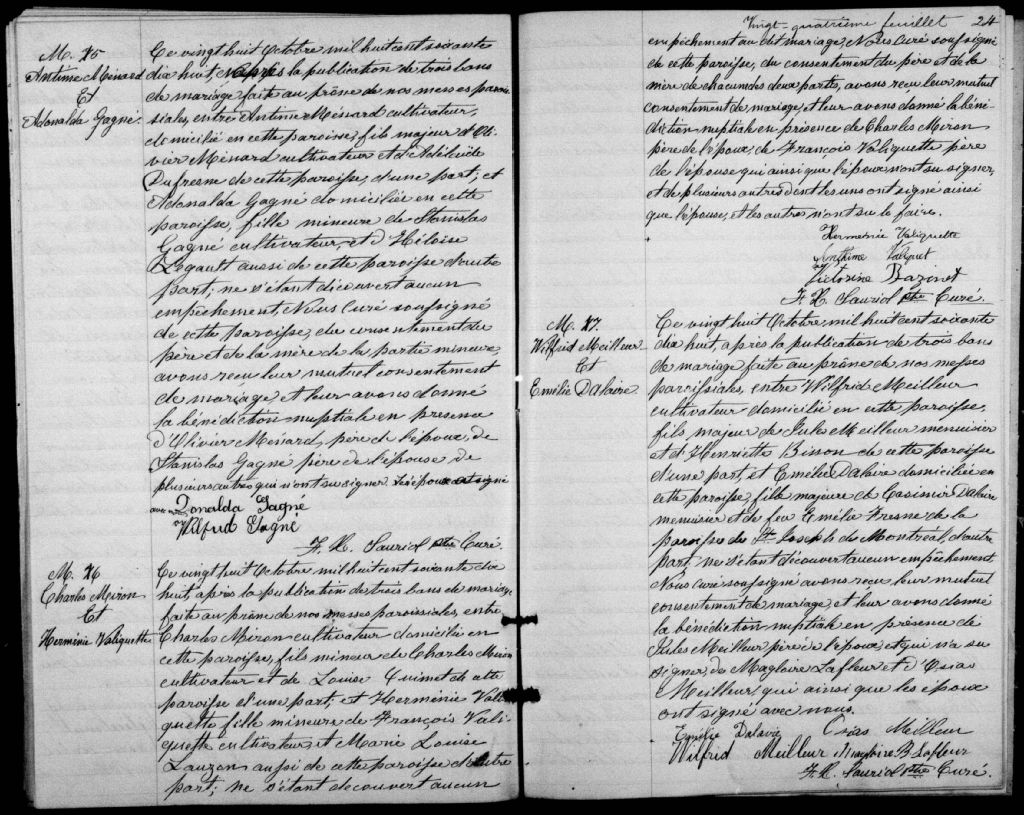 M. 15
Antime Ménard
Et
Adonalda Gagné.
Ce vingt huit Octobre mil huit cent soixante
dix huit, après la publication de trois bans
de mariage faite au prône de nos messes parois-
siales, entre Antime Ménard cultivateur,
domicilié en cette paroisse, fils majeur d'Oli-
vier Ménard cultivateur et d'Adélaïde
Dufresne de cette paroisse, d'une part; et
Adonalda Gagné domiciliée en cette
paroisse, fille mineure de Stanislas
Gagné cultivateur, et d'Héloïse
Legault aussi de cette paroisse d'autre
part; ne s'étant découvert aucun
empêchement, Nous Curé soussigné
de cette paroisse, du consentement du
père et de la mère de la partie mineure,
avons reçu leur mutuel consentement
de mariage et leur avons donné
la bénédiction nuptiale en présence
d'Olivier Ménard, père de l'époux, de
Stanislas Gagné père de l'épouse de
plusieurs autres qui n'ont su signer. L'épouse a signé
avec nous Donalda Gagné
Wilfrid Gagné
F. X. Sauriol Ptre Curé.
M. 16
Charles Miron
Et
Herménie Valiquette
Ce vingt huit Octobre mil huit cent soixante dix
huit, après la publication de trois bans de mariage
faite au prône de nos messes paroissiales, entre
Charles Miron cultivateur domicilié en
cette paroisse, fils mineur de Charles Miron
cultivateur et de Louise Ouimet de cette
paroisse d'une part; et Herménie Vali-
quette fille mineure de François Vali-
quette cultivateur, et Marie Louise
Lauzon aussi de cette paroisse d'autre
part; ne s'étant découvert aucun
Vingt-quatrième feuillet 24
empêchement au dit mariage, Nous Curé soussigné
de cette paroisse, du consentement du père et de la
mère de chacun des deux partis, avons reçu leur mutuel
consentement de mariage, et leur avons donné la béné-
diction nuptiale en présence de Charles Miron
père de l'époux, de François Valiquette père
de l'épouse qui ainsi que l'époux n'ont su signer,
et de plusieurs autres dont les uns ont signé ainsi
que l'épouse, et les autres n'ont su le faire.
Hermenie Valiquette
Anthime Valiquet
Victorine Bazinet
F. X. Sauriol Ptre Curé.
M. 17.
Wilfrid Meilleur
Et
Emélie Dalaire.
Ce vingt huit Octobre, mil huit cent soixante
dix huit, après la publication de trois bans
de mariage faite au prône de nos messes
paroissiales, entre Wilfrid Meilleur
cultivateur domicilié en cette paroisse,
fils majeur de Jules Meilleur menuisier
et d'Henriette Bisson de cette paroisse
d'une part, et Emélie Dalaire domiciliée en
cette paroisse, fille majeure de Casimir Dalaire
menuisier et de feu Emélie Fresne de la
paroisse de St Joseph de Montréal, d'autre
part, ne s'étant découvert aucun empêchement,
Nous Curé soussigné avons reçu leur mutuel
consentement de mariage, et leur avons donné
la bénédiction nuptiale en présence de
Jules Meilleur, père de l'époux, et qui n'a su
signer, de Magloire Lafleur et d'Osias
Meilleur, qui ainsi que les époux
ont signé avec nous.
Emélie Dalaire Osias Meilleur
Wilfrid Meilleur Magloire Lafleur
F. X. Sauriol Ptre Curé.